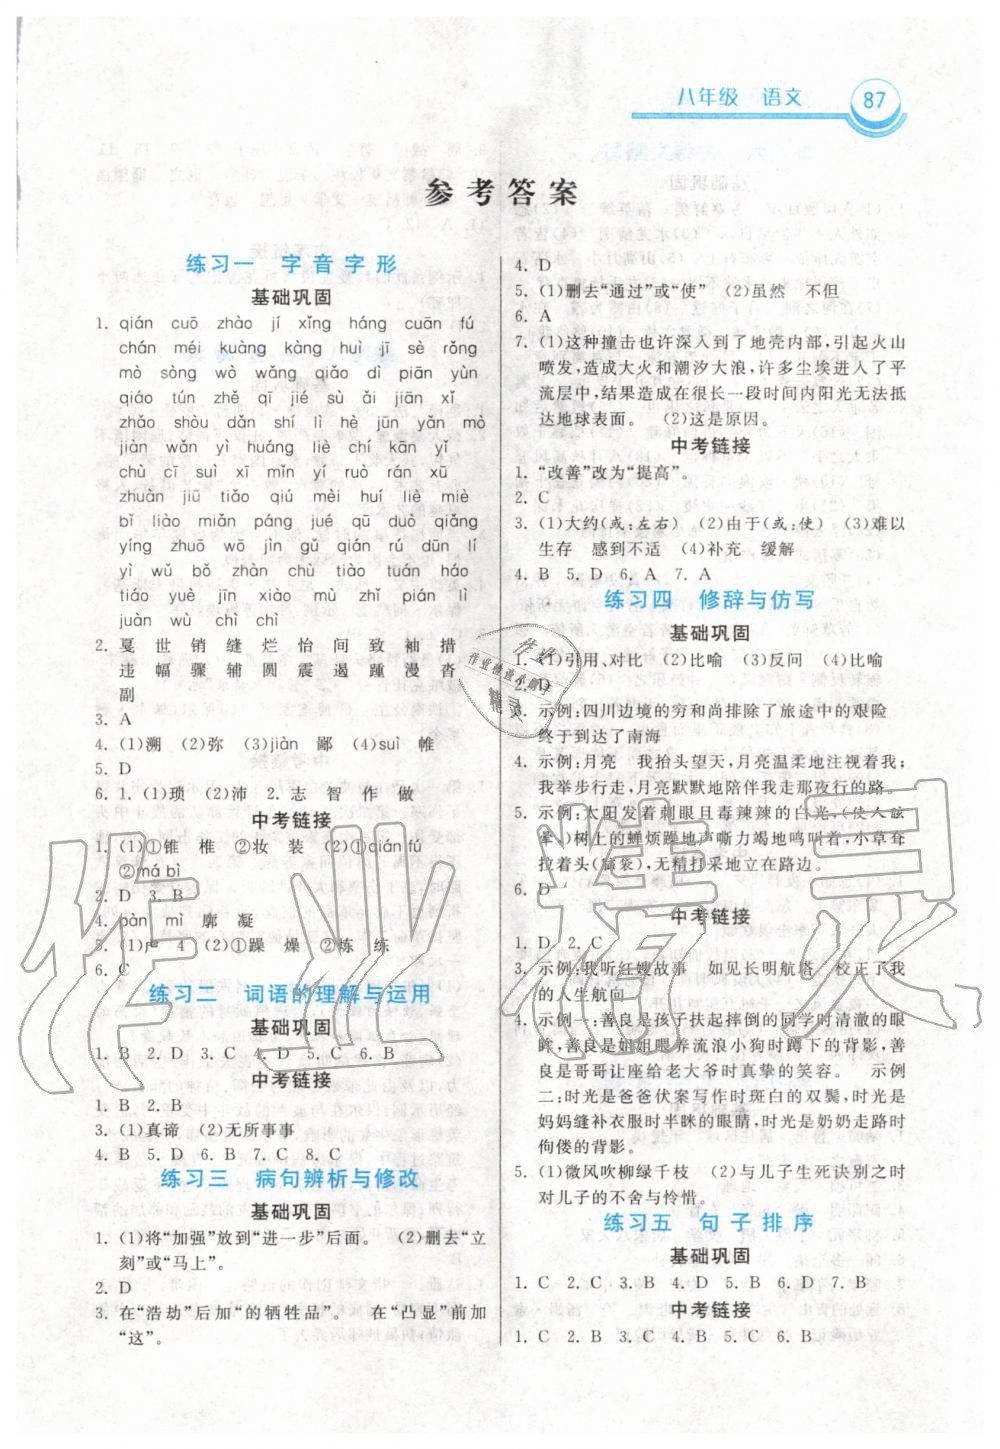 八年级 语文 87
参考答案
练习一 字音字形
基础巩固
1. qián cuō zhào jí xǐng háng cuān fú
chán méi kuàng kàng huì jī sè rǒng
mò sòng wò wǎng qiǎo dì piān yùn
qiáo tún zhě qī sù ǎi jiān xǐ
zhǎo shòu dǎn shí lì hè jūn yān mò
jiàn wǎn yì huáng liè chí kǎn yǐ
chù cī suì xī mǐn xiāo rú rán xù
zhuàn jiū tiǎo qiáo jǐ huí liè miè
bǐ liào miǎn páng jué qū duò qiǎng
yíng zhuō wō jìn gǔ qián rú piē
yì wǔ bǒ zhàn diào tiáo tuán háo
tiáo yuè jīn xiāo mù zhǐ piě líng
juàn wù chì chì
2. 戛 世 销 缝 烂 怡 间 致 袖 措
违 幅 骤 辅 圆 震 遏 踵 漫 沓
副
3. A
4. (1)溯 (2)弥 (3)jiàn 鄙 (4)suì 帷
5. D
6. 1. (1)琐 (2)沛 2. 志 智 作 做
中考链接
1. (1)①锥 椎 ②妆 装 (2)①qián fú
②má bì
2. D 3. B
4. bàn mì 廓 凝
5. (1) 4 (2)①躁 燥 ②炼 练
6. C
练习二 词语的理解与运用
基础巩固
1. B 2. D 3. C 4. D 5. C 6. B
中考链接
1. B 2. B
3. (1)真谛 (2)无所事事
4. B 5. D 6. B 7. B 8. D
练习三 病句辨析与修改
基础巩固
1. (1)将“加强”放到“进一步”后面。 (2)删去“立
刻”或“马上”。
2. D
3. 在“浩劫”后加“的牺牲品”。 在“凸显”前加
“这”。
4. D
5. (1)删去“通过”或“使” (2)虽然 不但
6. A
7. (1)这种撞击也许深入到了地壳内部,引起火山
喷发,造成大火和潮汐大浪,许多尘埃进入了平
流层中,结果造成在很长一段时间内阳光无法抵
达地球表面。 (2)这是原因。
中考链接
1. “改善”改为“提高”。
2. C
3. (1)大约(或:左右) (2)由于(或:使) (3)难以
生存 感到不适 (4)补充 缓解
4. B 5. D 6. A 7. A
练习四 修辞与仿写
基础巩固
1. (1)引用、对比 (2)比喻 (3)反问 (4)比喻
2. D
3. 示例:四川边境的穷和尚排除了旅途中的艰险
终于到达了南海
4. 示例:月亮 我抬头望天,月亮温柔地注视着我;
我举步前行,月亮默默地陪伴我走那夜行的路。
5. 示例:太阳发着刺眼且毒辣辣的白光,(使人眩
晕)树上的蝉烦躁地声嘶力竭地鸣叫着,小草耷
拉着头(脑袋),无精打采地立在路边。
6. D
中考链接
1. D 2. C
3. 示例:我听红嫂故事 如见长明航塔 校正了我
的人生航向
4. 示例一:善良是孩子扶起摔倒的同学时清澈的眼
眸,善良是姑姐喂养流浪小狗时蹲下的背影,善
良是哥哥让座给老大爷时真挚的笑容。 示例
二:时光是爸爸伏案写作时斑白的双鬓,时光是
妈妈缝补衣服时半眯的眼睛,时光是奶奶走路时
佝偻的背影。
5. (1)微风吹柳绿千枝 (2)与儿子生死诀别之时
对儿子的不舍与怜惜。
练习五 句子排序
基础巩固
1. C 2. C 3. B 4. D 5. D 6. D 7. B
中考链接
1. C 2. B 3. C 4. B 5. C 6. B